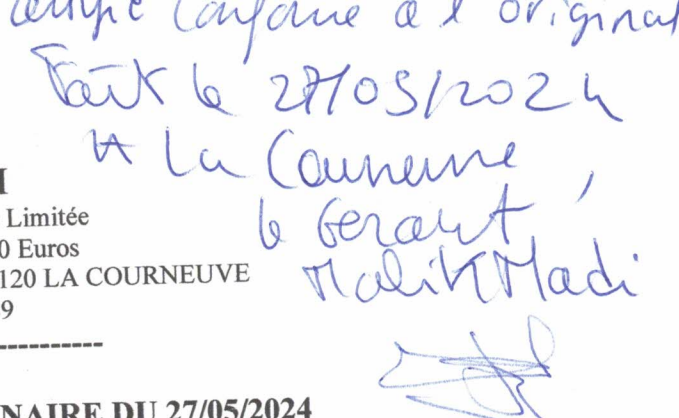 certifié Conforme à l'original
Fait le 27/05/2024
A La Courneuve,
le Gerant
Malik Madi
Limitée
0 Euros
120 LA COURNEUVE
9
----------
NAIRE DU 27/05/2024